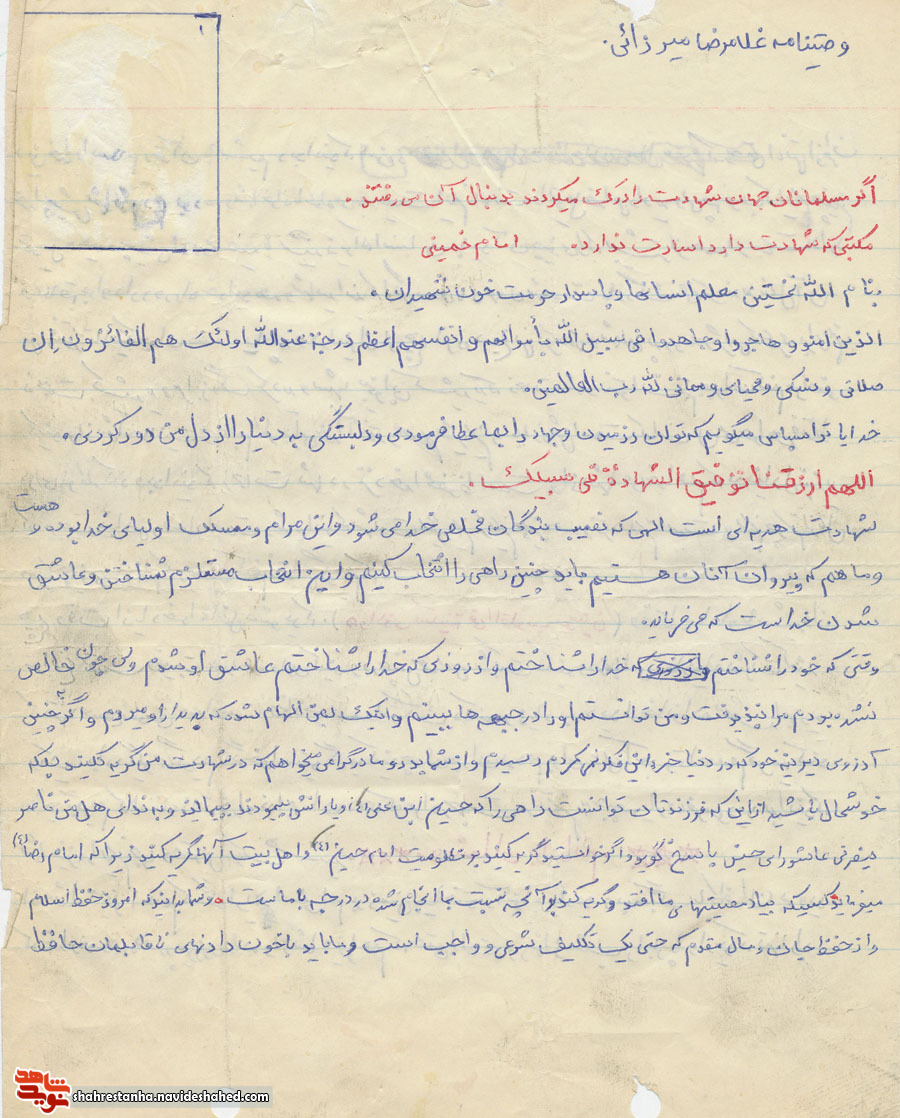 وصیتنامه غلامرضا میرزائی.
اگر مسلمانان جهان شهادت را درک میکردند بدنبال آن می رفتند.
مکتبی که شهادت دارد اسارت ندارد. امام خمینی
بنام الله نخستین معلم انسانها و پاسدار حرمت خون شهیدان.
الذین امنو و هاجروا و جاهدوا فی سبیل الله بأموالهم و انفسهم اعظم درجة عندالله اولئک هم الفائزون ان
صلاتی و نسکی و محیای و مماتی لله رب العالمین.
خدایا ترا سپاس میگویم که توان رزمیدن و جهاد را بما عطا فرمودی و دلبستگی به دنیا را از دل من دور کردی.
اللهم ارزقنا توفیق الشهادة فی سبیلک.
شهادت هدیه ای است الهی که نصیب بندگان مخلص خدا می شود و این مرام و مسلک اولیای خدا بوده و هست
و ما هم که پیروان آنان هستیم باید چنین راهی را انتخاب کنیم و این انتخاب مستلزم شناختن و عاشق
شدن خداست که می فرماید.
وقتی که خود را شناختم که خدا را شناختم و از روزی که خدا را شناختم عاشق او شدم ولی چون خالص
نشده بودم مرا نپذیرفت و من توانستم او را در جبهه ها ببینم و اینک بمن الهام شود که بدیدار او میروم و اگر به چنین
آرزوی دیرینه خود که در دنیا جز این فکر نمی کردم رسیدم و از شما پدر و مادر گرامی میخواهم که در شهادت من گریه نکنید بلکه
خوشحال باشید از اینکه فرزندتان توانست راهی را که حسین ابن علی (ع) و یارانش پیمودند بپیماید و به ندای هل من ناصر
ینصرنی عاشورای حسین پاسخ گوید و اگر خواستید گریه کنید بر مظلومیت امام حسین (ع) و اهل بیت آنها گریه کنید زیرا که امام رضا (ع)
میفرماید کسیکه بیاد مصیبتهای ما افتد و گریه کند بر آنچه نسبت بما انجام شده در درجه با ماست. و شما بدانید که امروز حفظ اسلام
و از حفظ جان و مال مقدم که حتی یک تکلیف شرعی و واجب است و ما باید با خون دادنهای ناقابلمان حافظ
نوید شاهد
shahrestanha.navideshahed.com